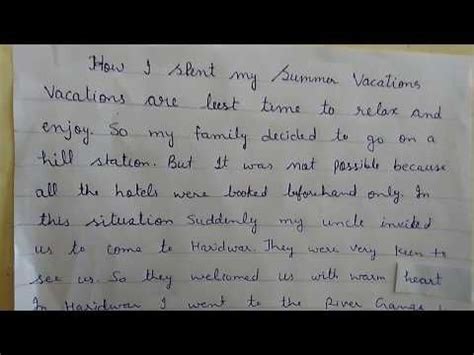 How I spent my Summer Vacations
Vacations are best time to relax and
enjoy. So my family decided to go on a
hill station. But It was not possible because
all the hotels were booked beforehand only. In
this situation Suddenly my uncle invited
us to come to Haridwar. They were very keen to
see us. So they welcomed us with warm heart
In Haridwar I went to the River Ganga